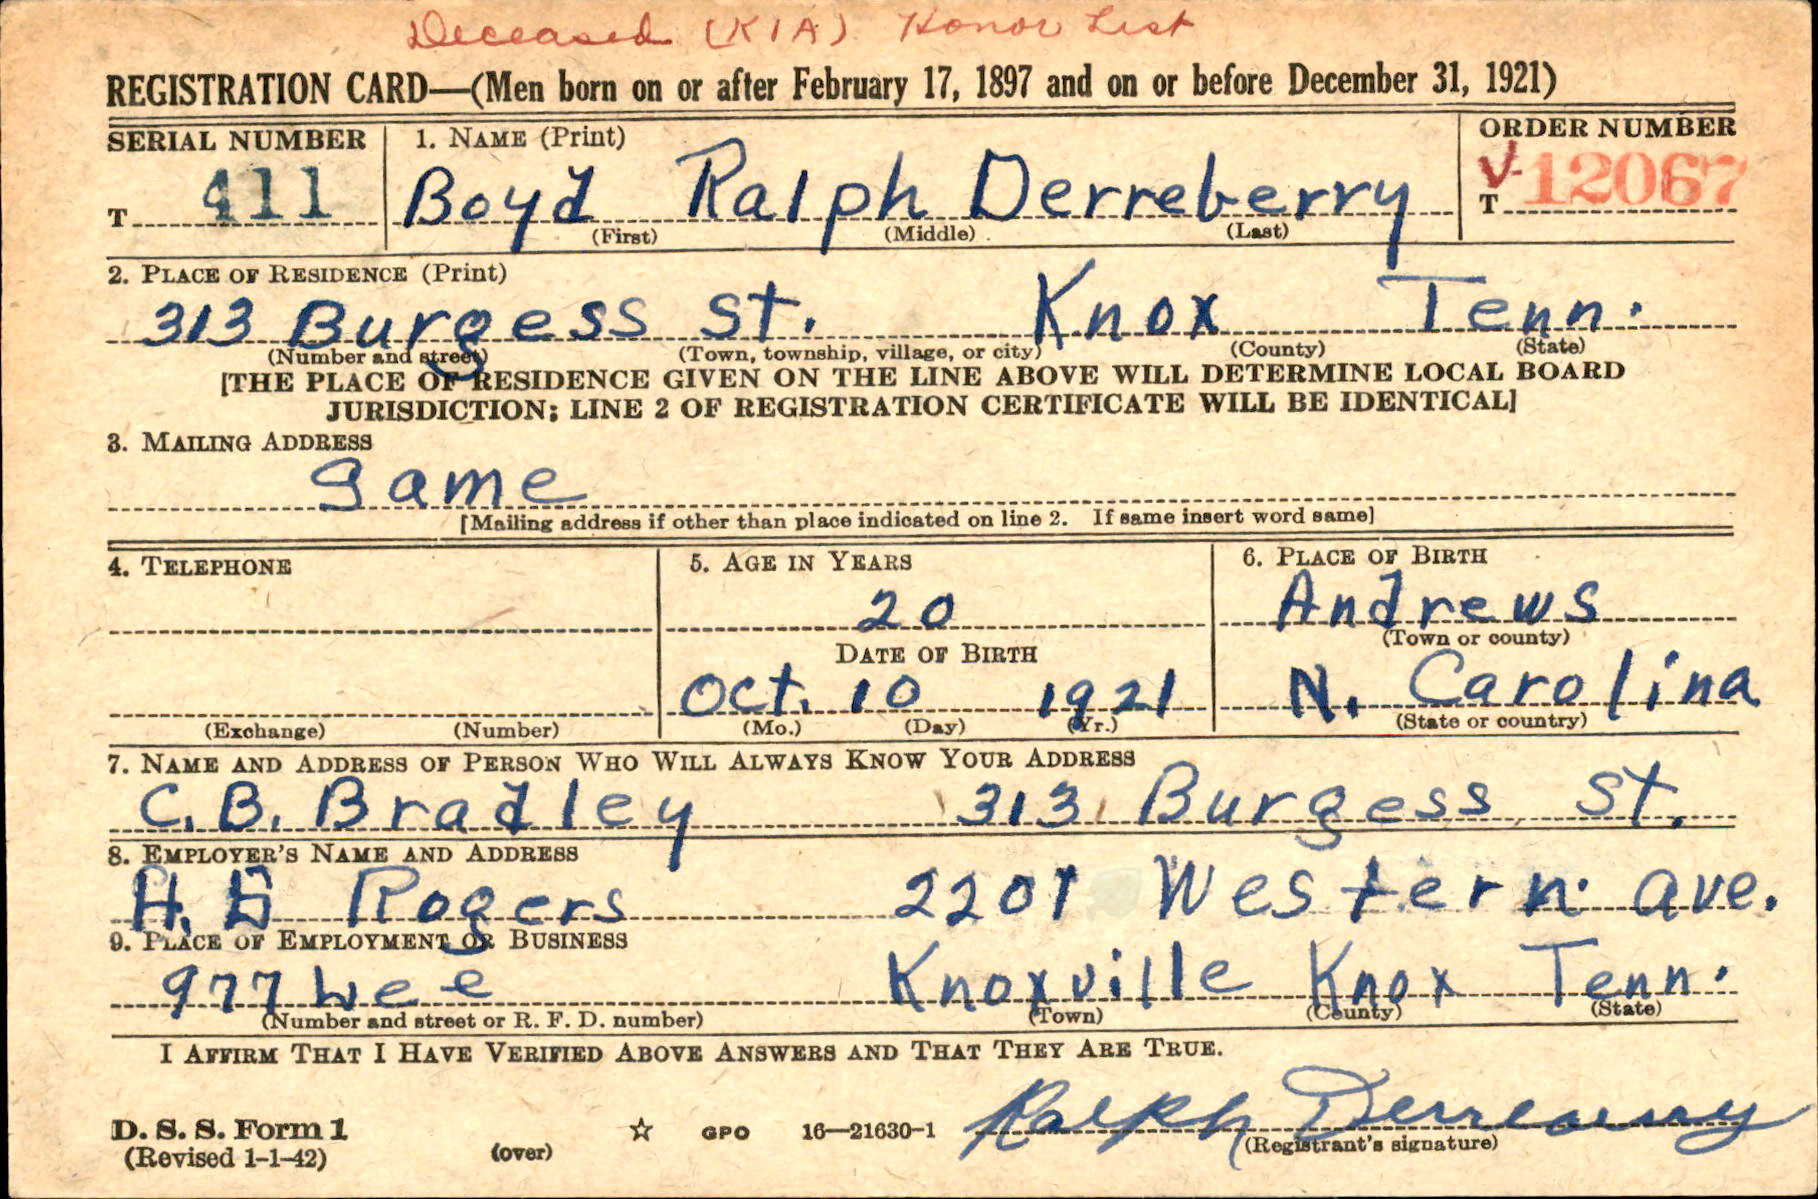 Deceased (KIA) Honor List
REGISTRATION CARD—(Men born on or after February 17, 1897 and on or before December 31, 1921)
SERIAL NUMBER 1. NAME (Print) ORDER NUMBER
T 411 Boyd Ralph Derreberry V-12067 T
(First) (Middle) (Last)
2. PLACE OF RESIDENCE (Print)
313 Burgess St. Knox Tenn.
(Number and street) (Town, township, village, or city) (County) (State)
[THE PLACE OF RESIDENCE GIVEN ON THE LINE ABOVE WILL DETERMINE LOCAL BOARD
JURISDICTION; LINE 2 OF REGISTRATION CERTIFICATE WILL BE IDENTICAL]
3. MAILING ADDRESS
Same
[Mailing address if other than place indicated on line 2. If same insert word same]
4. TELEPHONE 5. AGE IN YEARS 6. PLACE OF BIRTH
20 Andrews
(Town or county)
DATE OF BIRTH
Oct. 10 1921 N. Carolina
(Exchange) (Number) (Mo.) (Day) (Yr.) (State or country)
7. NAME AND ADDRESS OF PERSON WHO WILL ALWAYS KNOW YOUR ADDRESS
C. B. Bradley 313 Burgess St.
8. EMPLOYER'S NAME AND ADDRESS
H. Rogers 2201 Western ave.
9. PLACE OF EMPLOYMENT OR BUSINESS
977 Knoxville Knox Tenn.
(Number and street or R. F. D. number) (Town) (County) (State)
I AFFIRM THAT I HAVE VERIFIED ABOVE ANSWERS AND THAT THEY ARE TRUE.
Ralph Derreberry
D. S. S. Form 1
(Revised 1-1-42) (over) ☆ GPO 16—21630-1 (Registrant's signature)